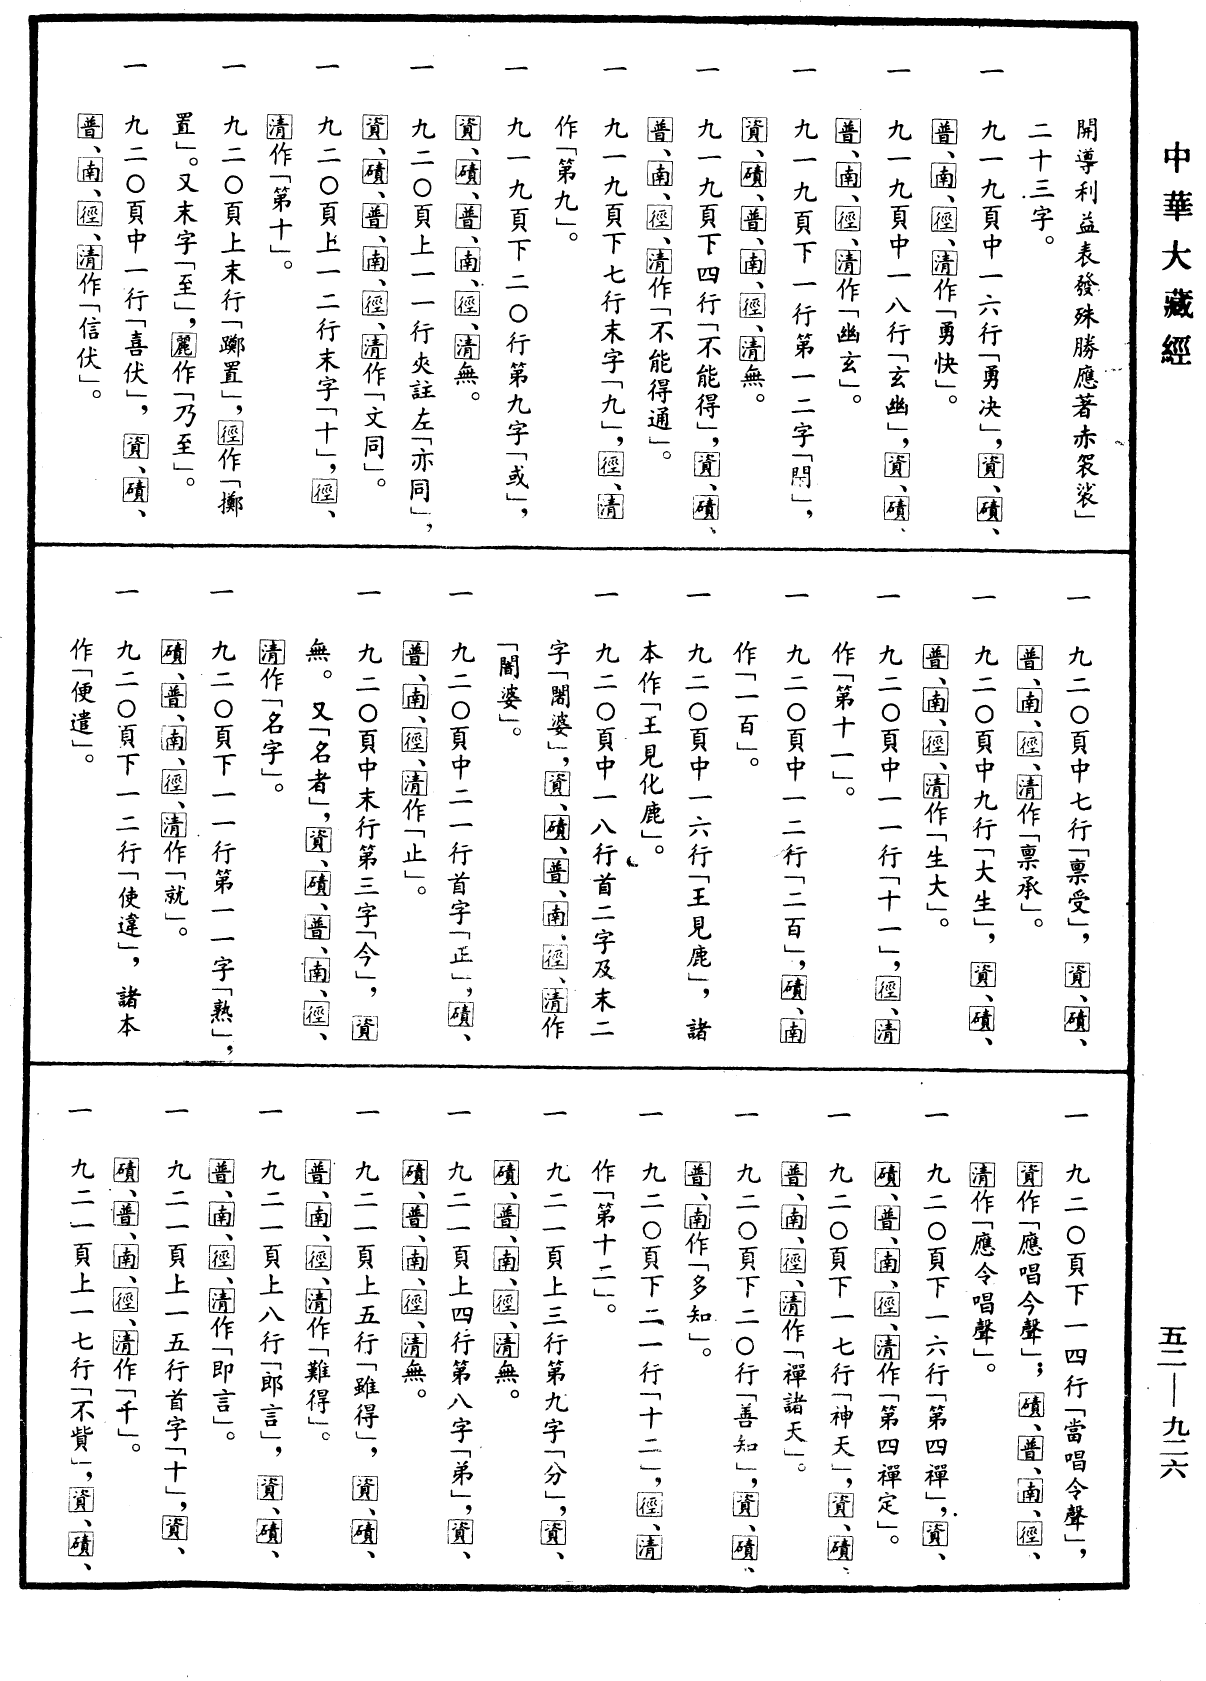 中華大藏經
開導利益表發殊勝應著赤袈裟」
二十三字。
一　九一九頁中一六行「勇决」，資、磧、
普、南、徑、清作「勇快」。
一　九一九頁中一八行「玄幽」，資、磧、
普、南、徑、清作「幽玄」。
一　九一九頁下一行第一二字「問」，
資、磧、普、南、徑、清無。
一　九一九頁下四行「不能得」，資、磧、
普、南、徑、清作「不能得通」。
一　九一九頁下七行末字「九」，徑、清
作「第九」。
一　九一九頁下二〇行第九字「或」，
資、磧、普、南、徑、清無。
一　九二〇頁上一一行夾註左「亦同」，
資、磧、普、南、徑、清作「文同」。
一　九二〇頁上一二行末字「十」，徑、
清作「第十」。
一　九二〇頁上末行「躑置」，徑作「擲
置」。又末字「至」，麗作「乃至」。
一　九二〇頁中一行「喜伏」，資、磧、
普、南、徑、清作「信伏」。
一　九二〇頁中七行「禀受」，資、磧、
普、南、徑、清作「禀承」。
一　九二〇頁中九行「大生」，資、磧、
普、南、徑、清作「生大」。
一　九二〇頁中一一行「十一」，徑、清
作「第十一」。
一　九二〇頁中一二行「二百」，磧、南
作「一百」。
一　九二〇頁中一六行「王見鹿」，諸
本作「王見化鹿」。
一　九二〇頁中一八行首二字及末二
字「闍婆」，資、磧、普、南、徑、清作
「闍婆」。
一　九二〇頁中二一行首字「正」，磧、
普、南、徑、清作「止」。
一　九二〇頁中末行第三字「今」，資
無。又「名者」，資、磧、普、南、徑、
清作「名字」。
一　九二〇頁下一一行第一一字「熟」，
磧、普、南、徑、清作「就」。
一　九二〇頁下一二行「使違」，諸本
作「便遣」。
一　九二〇頁下一四行「當唱令聲」，
資作「應唱今聲」；磧、普、南、徑、
清作「應令唱聲」。
一　九二〇頁下一六行「第四禪」，資、
磧、普、南、徑、清作「第四禪定」。
一　九二〇頁下一七行「神天」，資、磧、
普、南、徑、清作「禪諸天」。
一　九二〇頁下二〇行「善知」，資、磧、
普、南作「多知」。
一　九二〇頁下二一行「十二」，徑、清
作「第十二」。
一　九二一頁上三行第九字「分」，資、
磧、普、南、徑、清無。
一　九二一頁上四行第八字「弟」，資、
磧、普、南、徑、清無。
一　九二一頁上五行「雖得」，資、磧、
普、南、徑、清作「難得」。
一　九二一頁上八行「郎言」，資、磧、
普、南、徑、清作「即言」。
一　九二一頁上一五行首字「十」，資、
磧、普、南、徑、清作「千」。
一　九二一頁上一七行「不貲」，資、磧、
五二—九二六